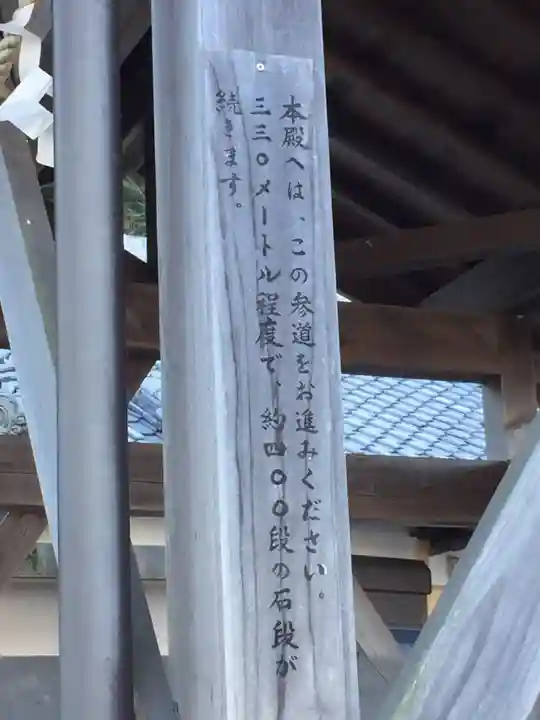 本殿へは、この参道をお進みください。
三三〇メートル程度で、約四〇〇段の石段が
続きます。